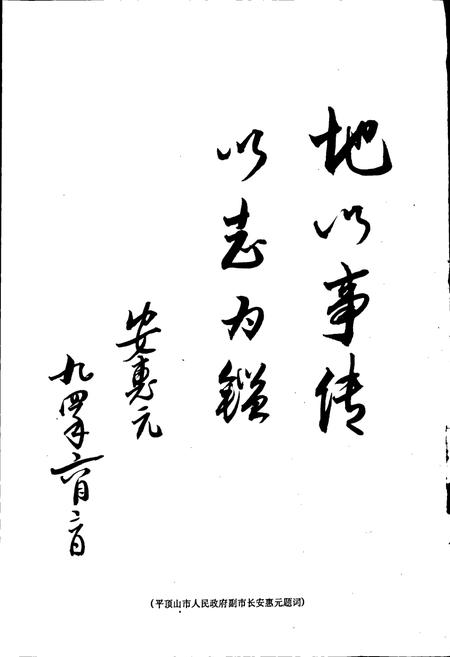 地以事传
以志为鉴
安惠元
九四年六月二日
(平顶山市人民政府副市长安惠元题词)